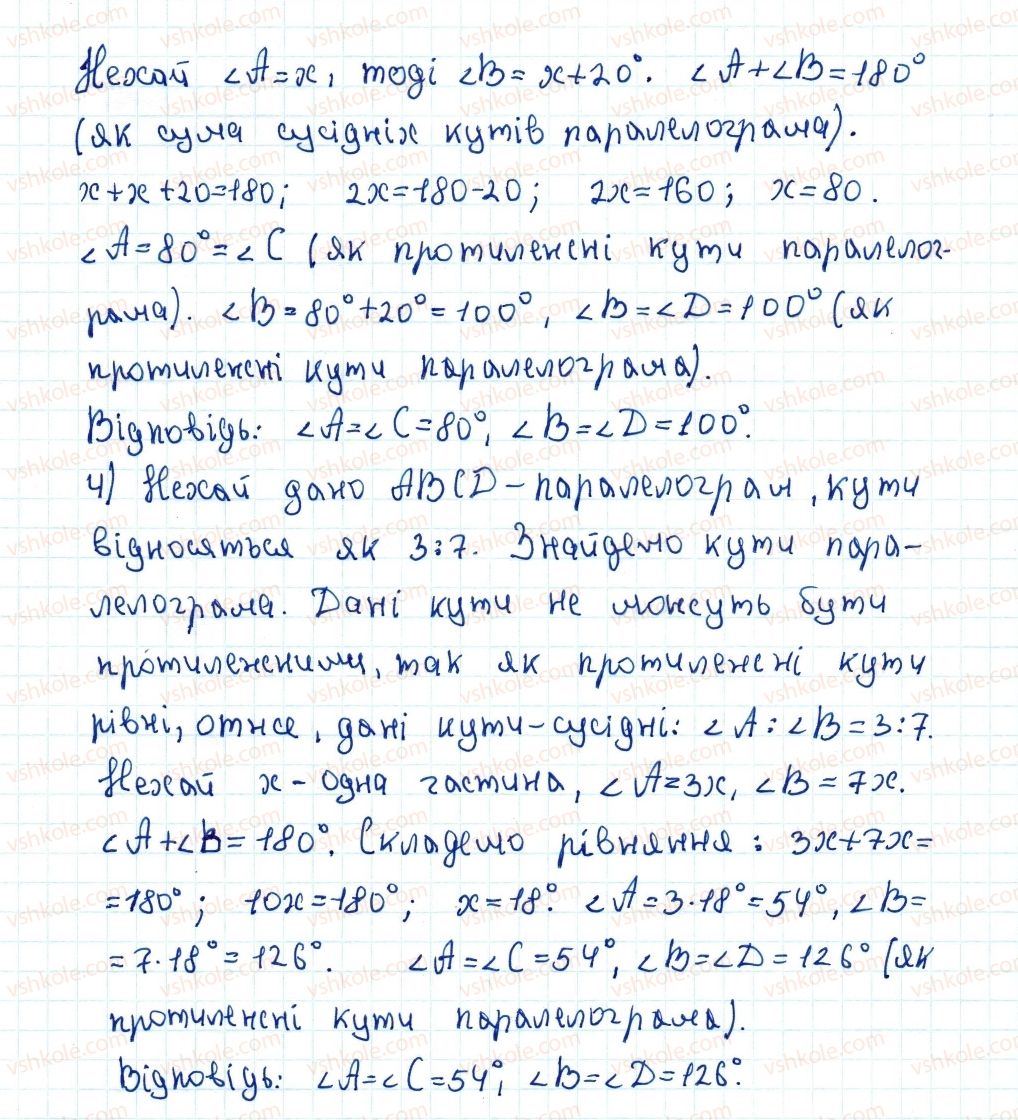 Нехай ∠A=x, тоді ∠B=x+20°. ∠A+∠B=180°
(як сума сусідніх кутів паралелограма).
x+x+20=180; 2x=180-20; 2x=160; x=80.
∠A=80°=∠C (як протилежні кути паралелог-
рама). ∠B=80°+20°=100°, ∠B=∠D=100° (як
протилежні кути паралелограма).
Відповідь: ∠A=∠C=80°, ∠B=∠D=100°.
4) Нехай дано ABCD-паралелограм, кути
відносяться як 3:7. Знайдемо кути пара-
лелограма. Дані кути не можуть бути
протилежними, так як протилежні кути
рівні, отже, дані кути-сусідні: ∠A:∠B=3:7.
Нехай x-одна частина, ∠A=3x, ∠B=7x.
∠A+∠B=180°. Складемо рівняння: 3x+7x=
=180°; 10x=180°; x=18°. ∠A=3·18°=54°, ∠B=
=7·18°=126°. ∠A=∠C=54°, ∠B=∠D=126° (як
протилежні кути паралелограма).
Відповідь: ∠A=∠C=54°, ∠B=∠D=126°.